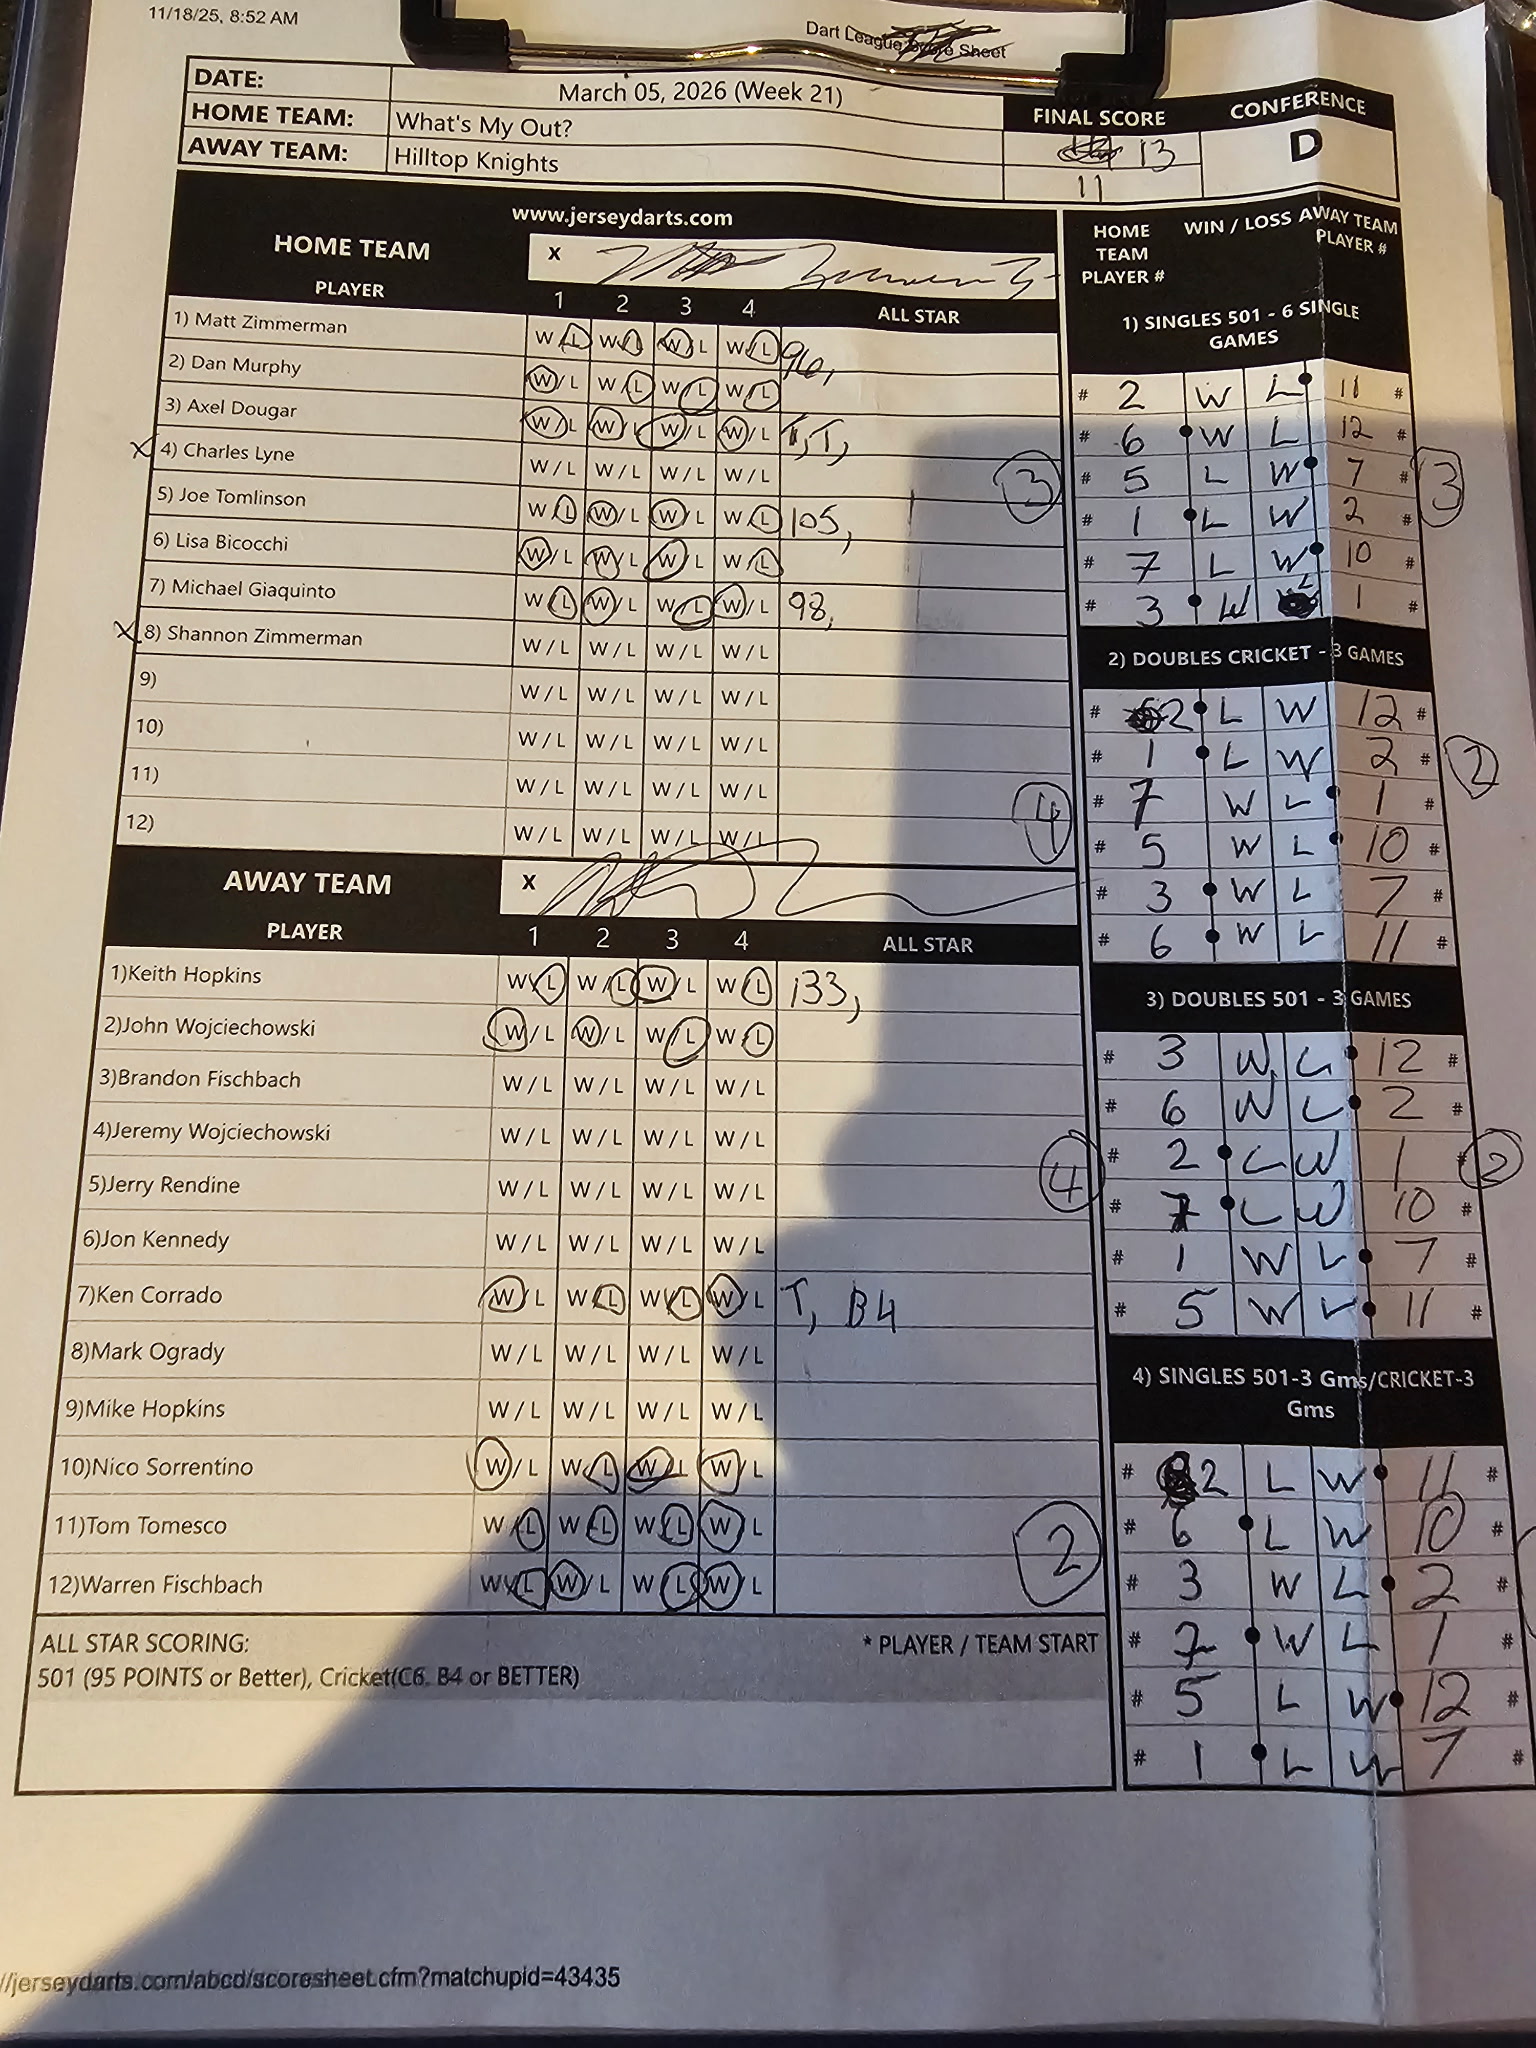 11/18/25, 8:52 AM
Dart League Score Sheet
DATE: March 05, 2026 (Week 21)
HOME TEAM: What's My Out?
AWAY TEAM: Hilltop Knights
FINAL SCORE
13
11
CONFERENCE
D
www.jerseydarts.com
HOME TEAM X
PLAYER 1 2 3 4 ALL STAR
1) Matt Zimmerman W/L W/L W/L W/L 96,
2) Dan Murphy W/L W/L W/L W/L
3) Axel Dougar W/L W/L W/L W/L T, T,
X 4) Charles Lyne W/L W/L W/L W/L
5) Joe Tomlinson W/L W/L W/L W/L 105,
6) Lisa Bicocchi W/L W/L W/L W/L
7) Michael Giaquinto W/L W/L W/L W/L 98,
X 8) Shannon Zimmerman W/L W/L W/L W/L
9) W/L W/L W/L W/L
10) W/L W/L W/L W/L
11) W/L W/L W/L W/L
12) W/L W/L W/L W/L
AWAY TEAM X
PLAYER 1 2 3 4 ALL STAR
1)Keith Hopkins W/L W/L W/L W/L 133,
2)John Wojciechowski W/L W/L W/L W/L
3)Brandon Fischbach W/L W/L W/L W/L
4)Jeremy Wojciechowski W/L W/L W/L W/L
5)Jerry Rendine W/L W/L W/L W/L
6)Jon Kennedy W/L W/L W/L W/L
7)Ken Corrado W/L W/L W/L W/L T, B4
8)Mark Ogrady W/L W/L W/L W/L
9)Mike Hopkins W/L W/L W/L W/L
10)Nico Sorrentino W/L W/L W/L W/L
11)Tom Tomesco W/L W/L W/L W/L
12)Warren Fischbach W/L W/L W/L W/L
ALL STAR SCORING: * PLAYER / TEAM START
501 (95 POINTS or Better), Cricket(C6, B4 or BETTER)
HOME TEAM PLAYER # WIN / LOSS AWAY TEAM PLAYER #
1) SINGLES 501 - 6 SINGLE GAMES
# 2 W L 11 #
# 6 W L 12 #
3 # 5 L W 7 # 3
# 1 L W 2 #
# 7 L W 10 #
# 3 W L 1 #
2) DOUBLES CRICKET - 3 GAMES
# 2 L W 12 #
# 1 L W 2 # 2
4 # 7 W L 1 #
# 5 W L 10 #
# 3 W L 7 #
# 6 W L 11 #
3) DOUBLES 501 - 3 GAMES
# 3 W L 12 #
# 6 W L 2 #
4 # 2 L W 1 # 2
# 7 L W 10 #
# 1 W L 7 #
# 5 W L 11 #
4) SINGLES 501-3 Gms/CRICKET-3 Gms
# 2 L W 11 #
2 # 6 L W 10 #
# 3 W L 2 #
# 7 W L 1 #
# 5 L W 12 #
# 1 L W 7 #
//jerseydarts.com/abcd/scoresheet.cfm?matchupid=43435